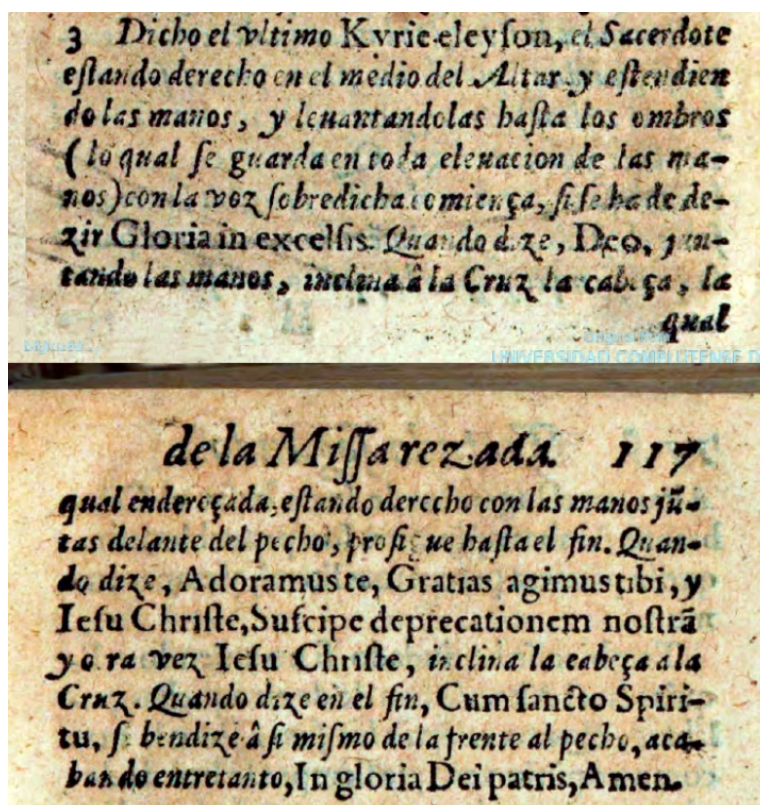 3 Dicho el vltimo Kyrie eleyſon, el Sacerdote
eſtando derecho en el medio del Altar y eſtendien
do las manos, y leuantandolas haſta los ombros
(lo qual ſe guarda en toda eleuacion de las ma-
nos) con la voz ſobredicha comiença, ſi ſe ha de de-
zir Gloria in excelſis. Quando dize, Deo, jun-
tando las manos, inclina â la Cruz la cabeça, la
qual
UNIVERSIDAD COMPLUTENSE D
de la Miſſa rezada. 117
qual endereçada, eſtando derecho con las manos jũ-
tas delante del pecho, proſigue haſta el fin. Quan-
do dize, Adoramus te, Gratias agimus tibi, y
Ieſu Chriſte, Suſcipe deprecationem noſtrã
y otra vez Ieſu Chriſte, inclina la cabeça a la
Cruz. Quando dize en el fin, Cum ſancto Spiri-
tu, ſe bendize â ſi miſmo de la frente al pecho, aca-
bando entretanto, In gloria Dei patris, Amen.